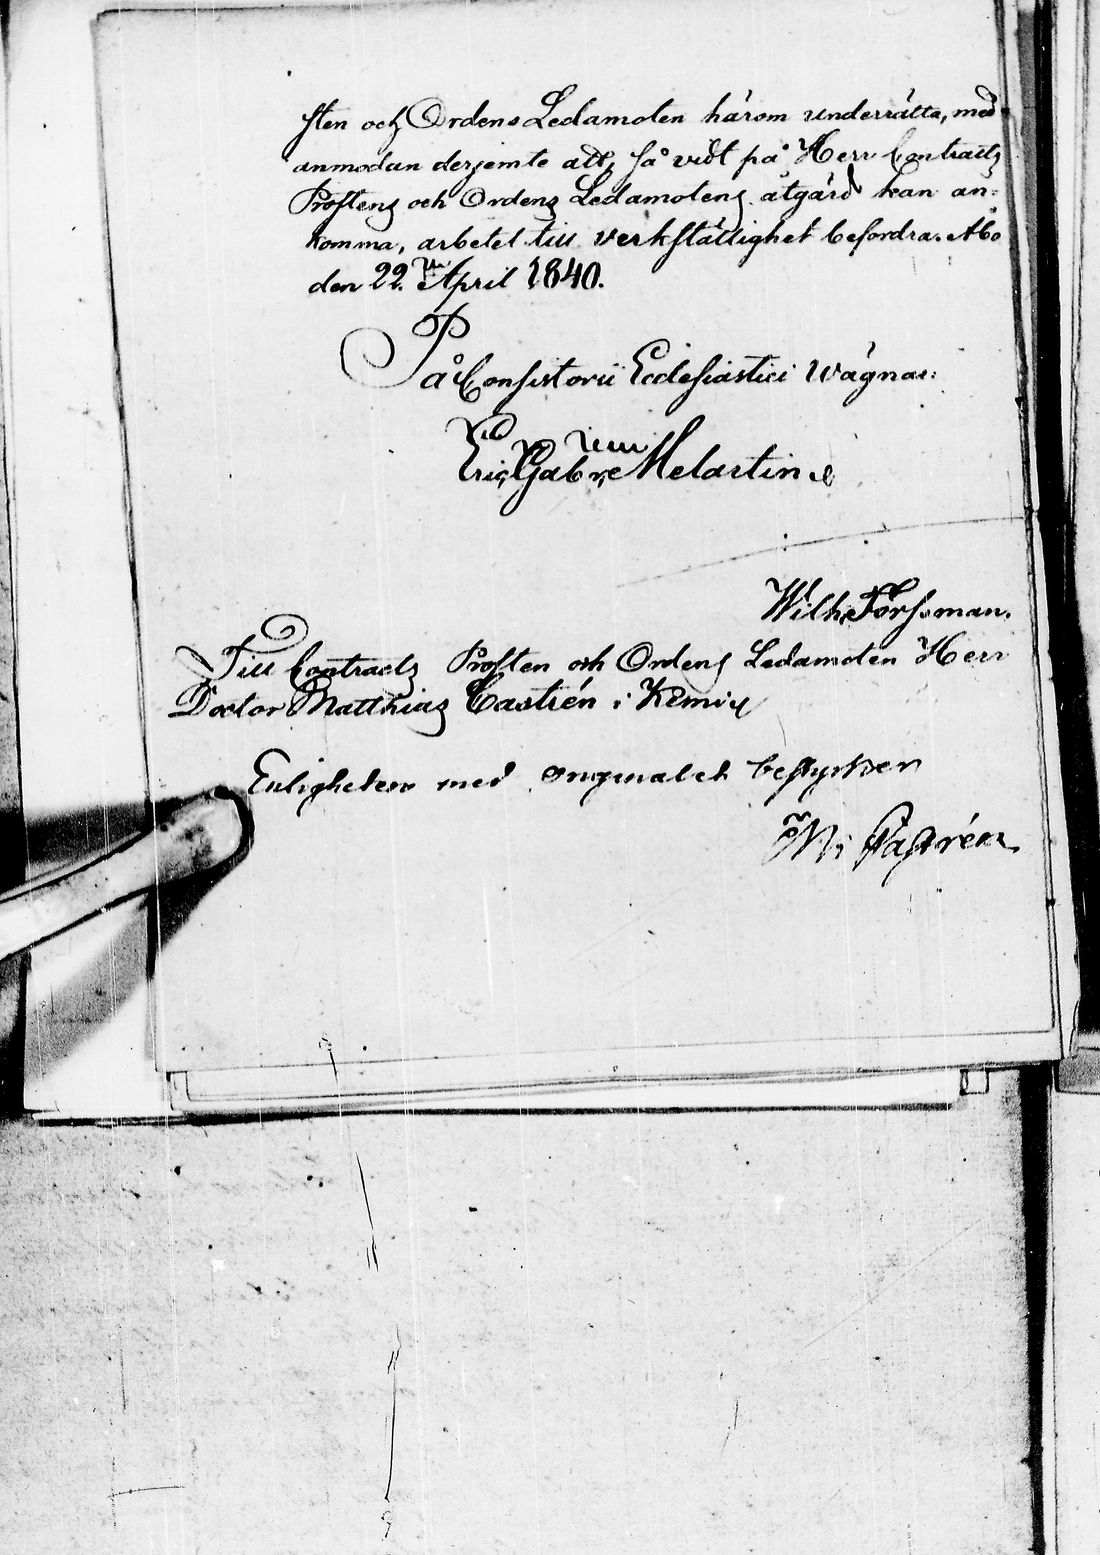 sten och Ordens Ledamoten härom underrätta, med
anmodan derjemte att, så vidt på Herr Contracts
Prostens och Ordens Ledamotens åtgärd kan an-
komma, arbetet till verkställighet befordra. Åbo
den 22. April 1840.
På Consistorii Ecclesiastici Wägnar:
Eric Gabr. Melartin
Wilh. Forssman.
Till Contracts Prosten och Ordens Ledamoten Herr
Doctor Matthias Castrén i Kemi
Enligheten med originalet bestyrker
M. Castrén